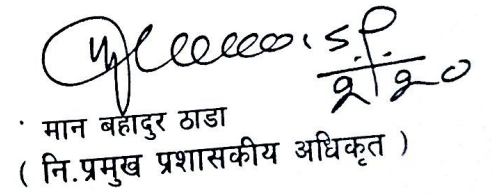 मान बहादुर ठाडा
( नि.प्रमुख प्रशासकीय अधिकृत )